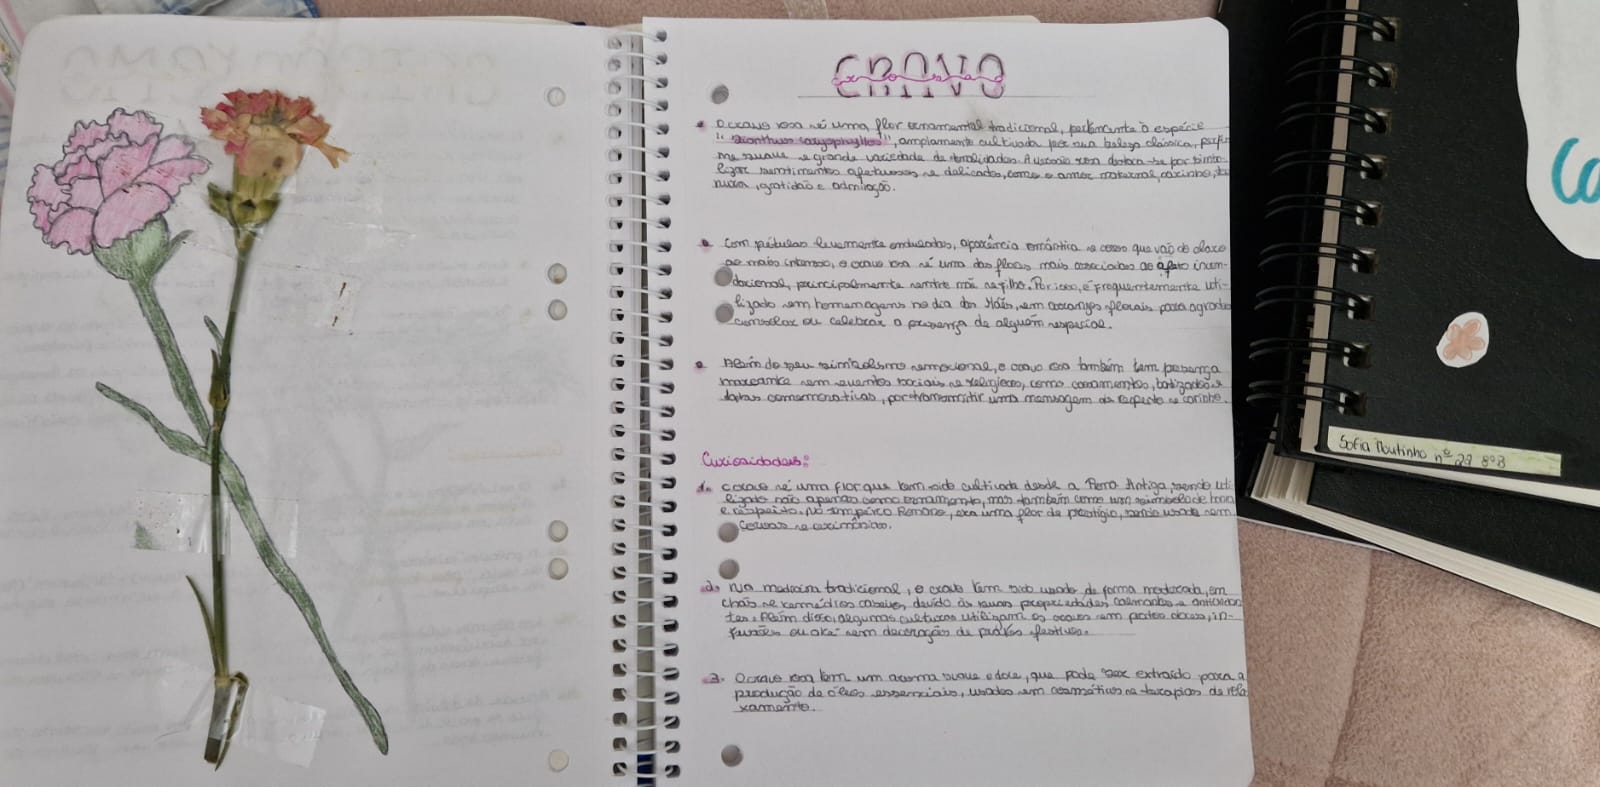 CRAVO
cravo rosa
O cravo rosa é uma flor ornamental tradicional, pertencente à espécie
"dianthus caryophyllos", ampliamente cultivada por sua beleza clássica, perfu-
me suave e grande variedade de tonalidades. A versão rosa destaca-se por simbo-
lizar sentimentos afetuosos e delicados, como o amor maternal, carinho, te
nura, gratidão e admiração.
Com pétulas levemente onduladas, aparência romântica e cores que vão do claro
ao mais intenso, o cravo rosa é uma das flores mais associadas ao afeto incon-
dacional, principalmente entre mãe e filho. Por isso, é frequentemente uti-
lizado em homenagens no dia das Mães, em arranjos florais para agradar
consolar ou celebrar a presença de alguém especial.
Além do seu simbolismo emocional, o cravo rosa também tem presença
marcante em eventos sociais e religiosos, como casamentos, batizados e
datas comemorativas, por transmitir uma mensagem de respeito e carinho.
Curiosidades:
1. O cravo é uma flor que tem sido cultivada desde a Roma Antiga, sendo uti
lizado não apenas como ornamento, mas também como um símbolo de honra
e respeito. No Império Romano, era uma flor de prestígio, sendo usada em
coroas e cerimônias.
2. Na medicina tradicional, o cravo tem sido usado de forma moderada, em
chás e remédios caseiros, devido às suas propriedades calmantes e antioxidan
tes. Além disso, algumas culturas utilizam os cravos em pratos doces, in-
fusões ou até em decorações de pratos festivos.
3. O cravo rosa tem um aroma suave e doce, que pode ser extraído para a
produção de óleos essenciais, usados em cosméticos e terapias de rela
xamento.
Ca
Sofia Moutinho nº 27 8ºB